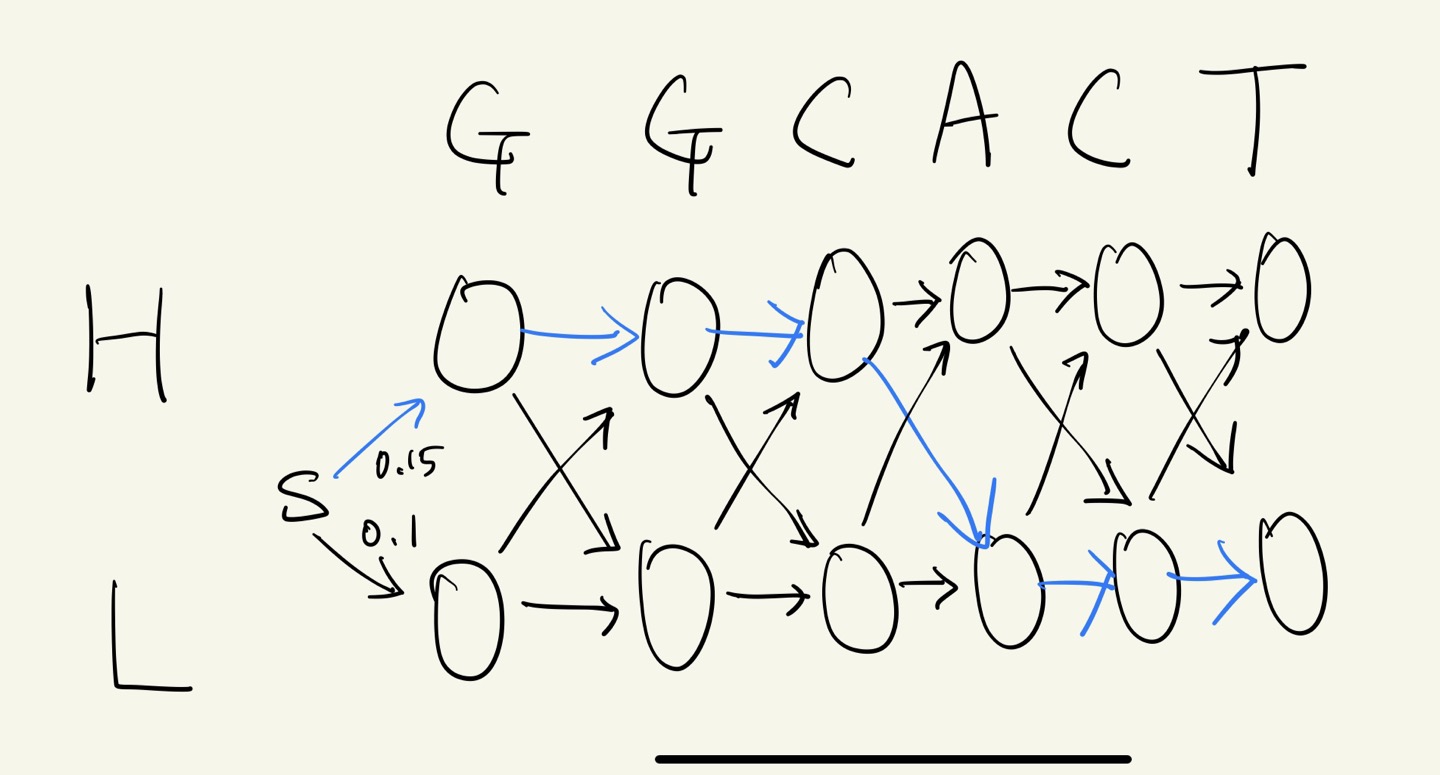 G G C A C T
H
0.15
S
0.1
L